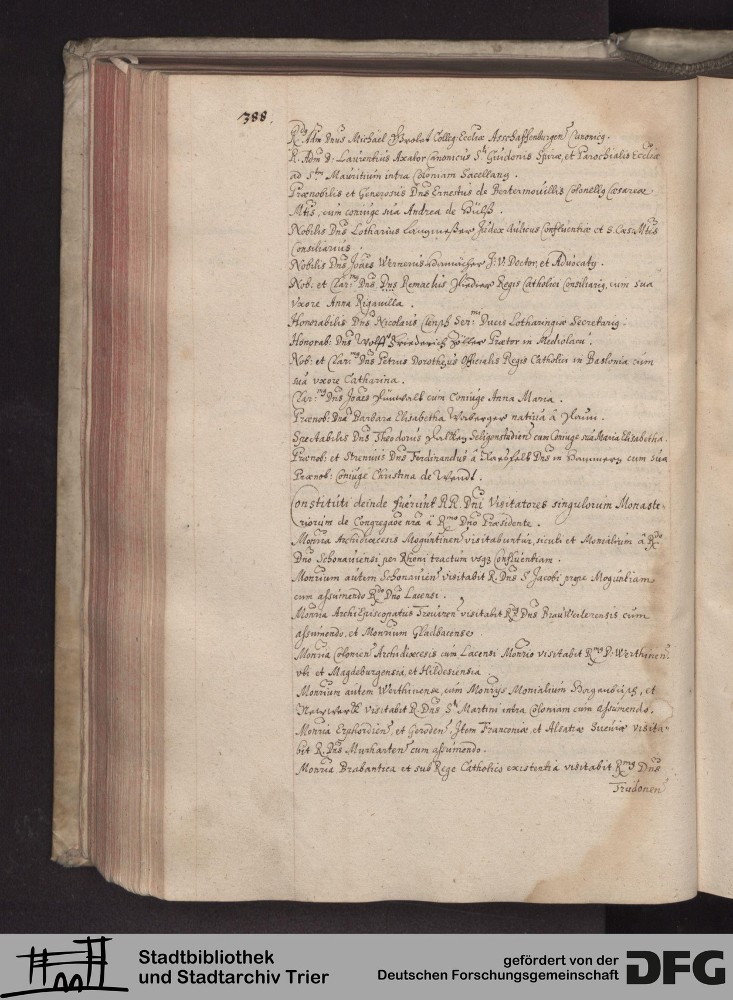 388.
R. Adm Dnus Michael Colleg: Ecclæ Asschaffenburgen Canonicg.
R. Adm D: Laurentius Axator Canonicus S. Guidonis Spiræ, et Parochialis Ecclæ
ad Stm Mauritium intra Coloniam Sacellang.
Prænobilis et Generosus Dns Ernestus de Bertermouillis Colonellg Cæsareæ
Mtis, cum coniuge sua Andrea de
Nobilis Dns Lotharius Judex Aulicus Confluentiæ et S. Cæs: Mtis
Consiliarius.
Nobilis Dns Joães Wernerus J. V. Doctor, et Aduicatg.
Nob. et Clar: Dns Dns Remaclus Regis Catholici Consiliarig, cum sua
Vxore Anna Rigauilla.
Honorabilis Dns Nicolaus Ser: Ducis Lotharingiæ Secretarig.
Honorab: Dns Wolff Friederich Zöller Prætor in Mediolacu.
Nob: et Clar: Dns Petrus Dorotheus Officialis Regis Catholici in Bastonia cum
sua vxore Catharina.
Clar: Dns Joães cum Coniuge Anna Maria.
Prænob: Dna Barbara Elisabetha natiua â
Spectabilis Dns Theodorus cum Coniuge sua Maria Elisabetha.
Prænob: et Strenuus Dns Ferdinandus â Dns in cum sua
Prænob: Coniuge Christina de Wendt.
Constituti deinde fuerunt RR. Dni Visitatores singulorum Monaste-
riorum de Congregaõe nra â Rmo Dno Præsidente.
Monria Archidiœcesis Moguntinen visitabuntur, sicuti et Monialium â R.
Dno Schonauiensi per Rheni tractum vsq Confluentiam.
Monrium autem Schonauien visitabit R. Dns S. Jacobi prope Moguntiam
cum assumendo R. Dno Lacensi.
Monria Archiepiscopatus Treuiren visitabit R. Dns BrauWeilerensis cum
assumendo, et Monrium Gladbacense.
Monria Colonien Archidiœcesis cum Lacensi Monrio visitabit R. D: Werthinen.
vti et Magdeburgensia, et Hildesiensia.
Monrium autem Werthinense, cum Monrys Monialium et
visitabit R. Dns S. Martini intra Coloniam cum assumendo.
Monria Erphordien, et Geroden, Jtem Franconiæ, et Alsatiæ Sueuiæ visita-
bit R. Dns Murharten cum assumendo.
Monria Brabantica et sub Rege Catholico existentia visitabit R. Dns
Trudonen
Stadtbibliothek
und Stadtarchiv Trier
gefördert von der
Deutschen Forschungsgemeinschaft
DFG